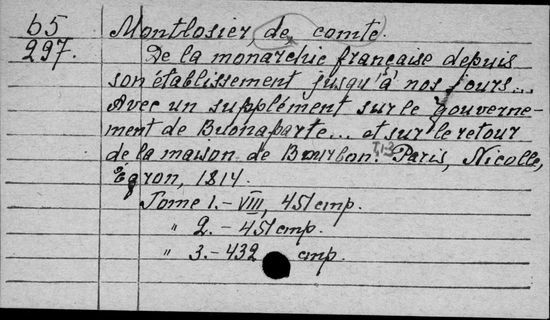 65
297.
Montlosier, de comte.
De la monarchie française depuis
son établissement jusqu'à nos jours...
Avec un supplément sur le gouverne-
ment de Buonaparte... et sur le retour
de la maison de Bourbon. T.1-3 Paris, Nicolle,
Egron, 1814.
Tome 1.-VIII, 451 стр.
" 2.- 451 стр.
" 3.- 432 стр.